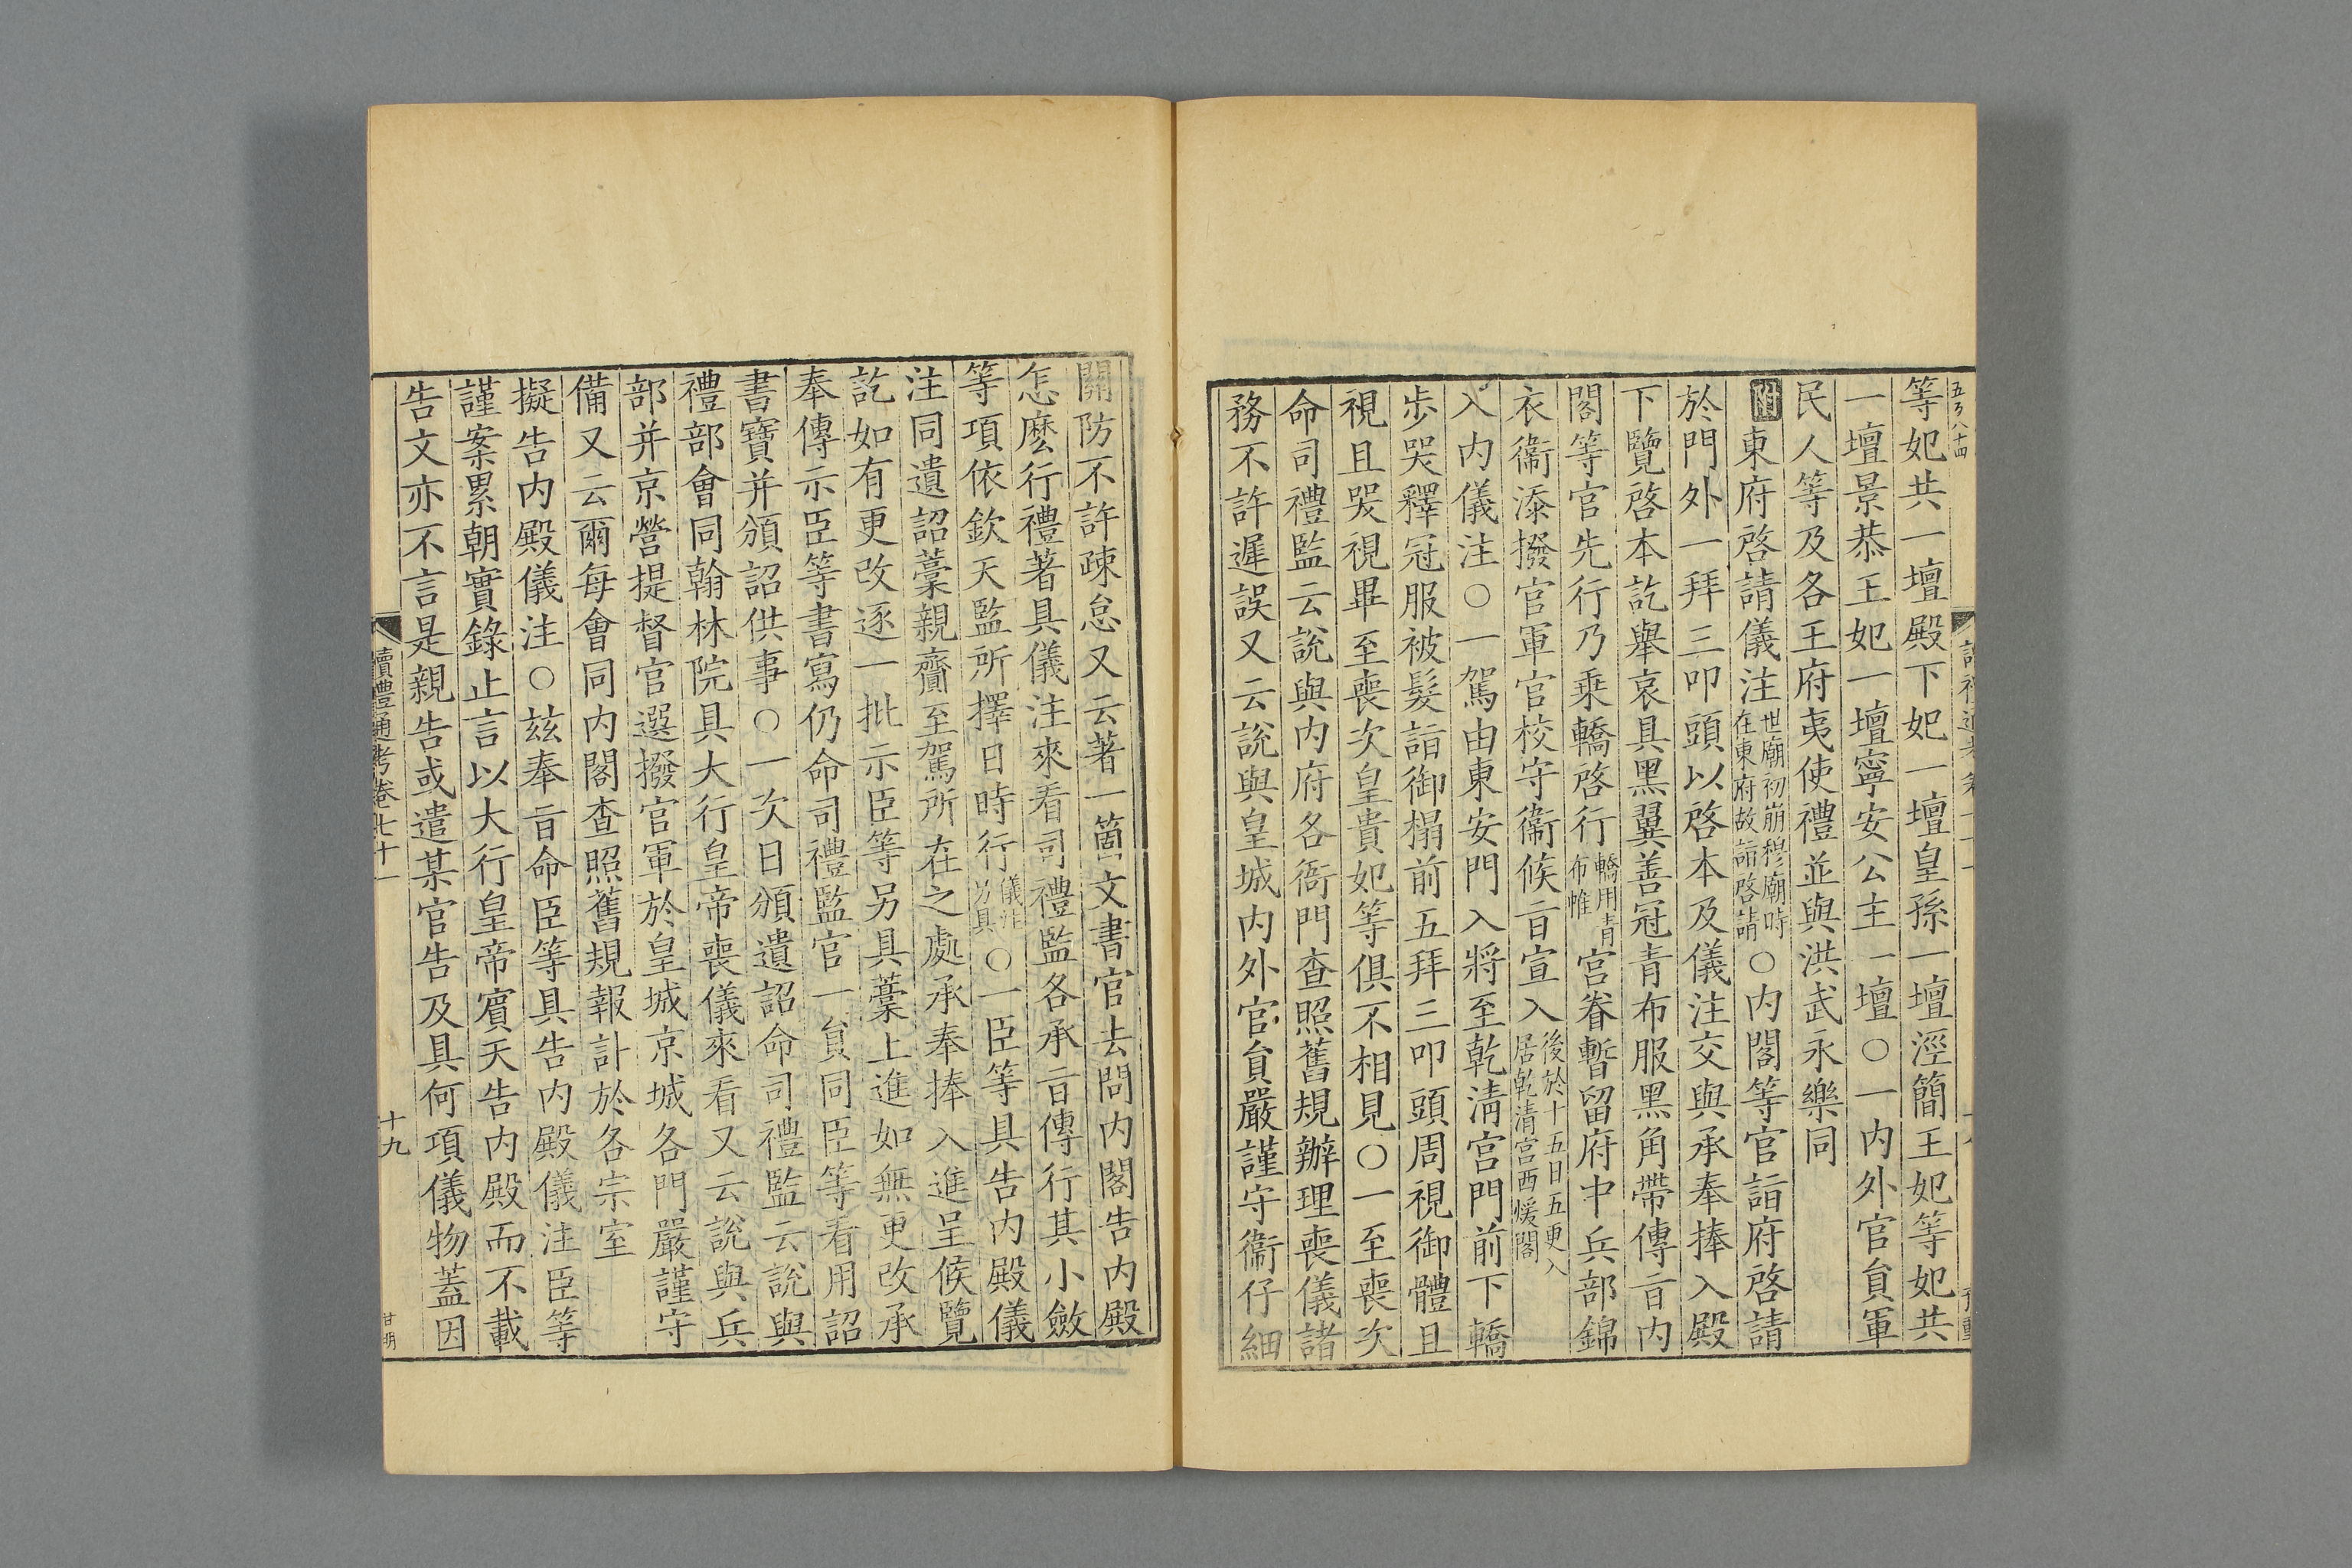 五百八十四
等妃共一壇殿下妃一壇皇孫一壇涇簡王妃等妃共
一壇景恭王妃一壇寧安公主一壇○一内外官員軍
民人等及各王府夷使禮並與洪武永樂同
附東府啓請儀注世廟初崩穆廟時在東府故詣啓請○内閣等官詣府啓請
於門外一拜三叩頭以啓本及儀注交與承奉捧入殿
下覽啓本訖舉哀具黑翼善冠青布服黑角帶傳㫖内
閣等官先行乃乗轎啓行轎用青布帷宮眷暫留府中兵部錦
衣衞添撥官軍官校守衞候㫖宣入後於十五日五更入居乾清宮西煖閣
入内儀注○一駕由東安門入將至乾淸宮門前下轎
歩哭釋冠服被髮詣御榻前五拜三叩頭周視御體且
視且哭視畢至喪次皇貴妃等俱不相見○一至喪次
命司禮監云說與内府各衙門查照舊規辦理喪儀諸
務不許遲誤又云說與皇城内外官員嚴謹守衞仔細
關防不許疎怠又云著一箇文書官去問内閣告内殿
怎麽行禮著具儀注來看司禮監各承㫖傳行其小斂
等項依欽天監所擇日時行儀注另具○一臣等具告内殿儀
注同遺詔藳親齎至駕所在之處承奉捧入進呈候覽
訖如有更改逐一批示臣等另具藳上進如無更改承
奉傳示臣等書寫仍命司禮監官一員同臣等看用詔
書寶并頒詔供事○一次日頒遺詔命司禮監云說與
禮部會同翰林院具大行皇帝喪儀來看又云說與兵
部并京營提督官選撥官軍於皇城京城各門嚴謹守
備又云爾每會同内閣查照舊規報訃於各宗室
擬告内殿儀注○茲奉㫖命臣等具告内殿儀注臣等
謹案累朝實錄止言以大行皇帝賓天告内殿而不載
告文亦不言是親告或遣某官告及具何項儀物蓋因
讀禮通考卷七十一
十九